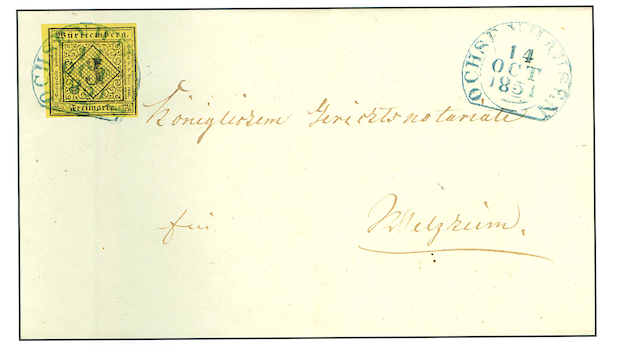 Württemberg.
3
Freimarke.
OCHSENHAUSEN
14
OCT
1851
Königlichem Gerichtsnotariate
Welzheim.